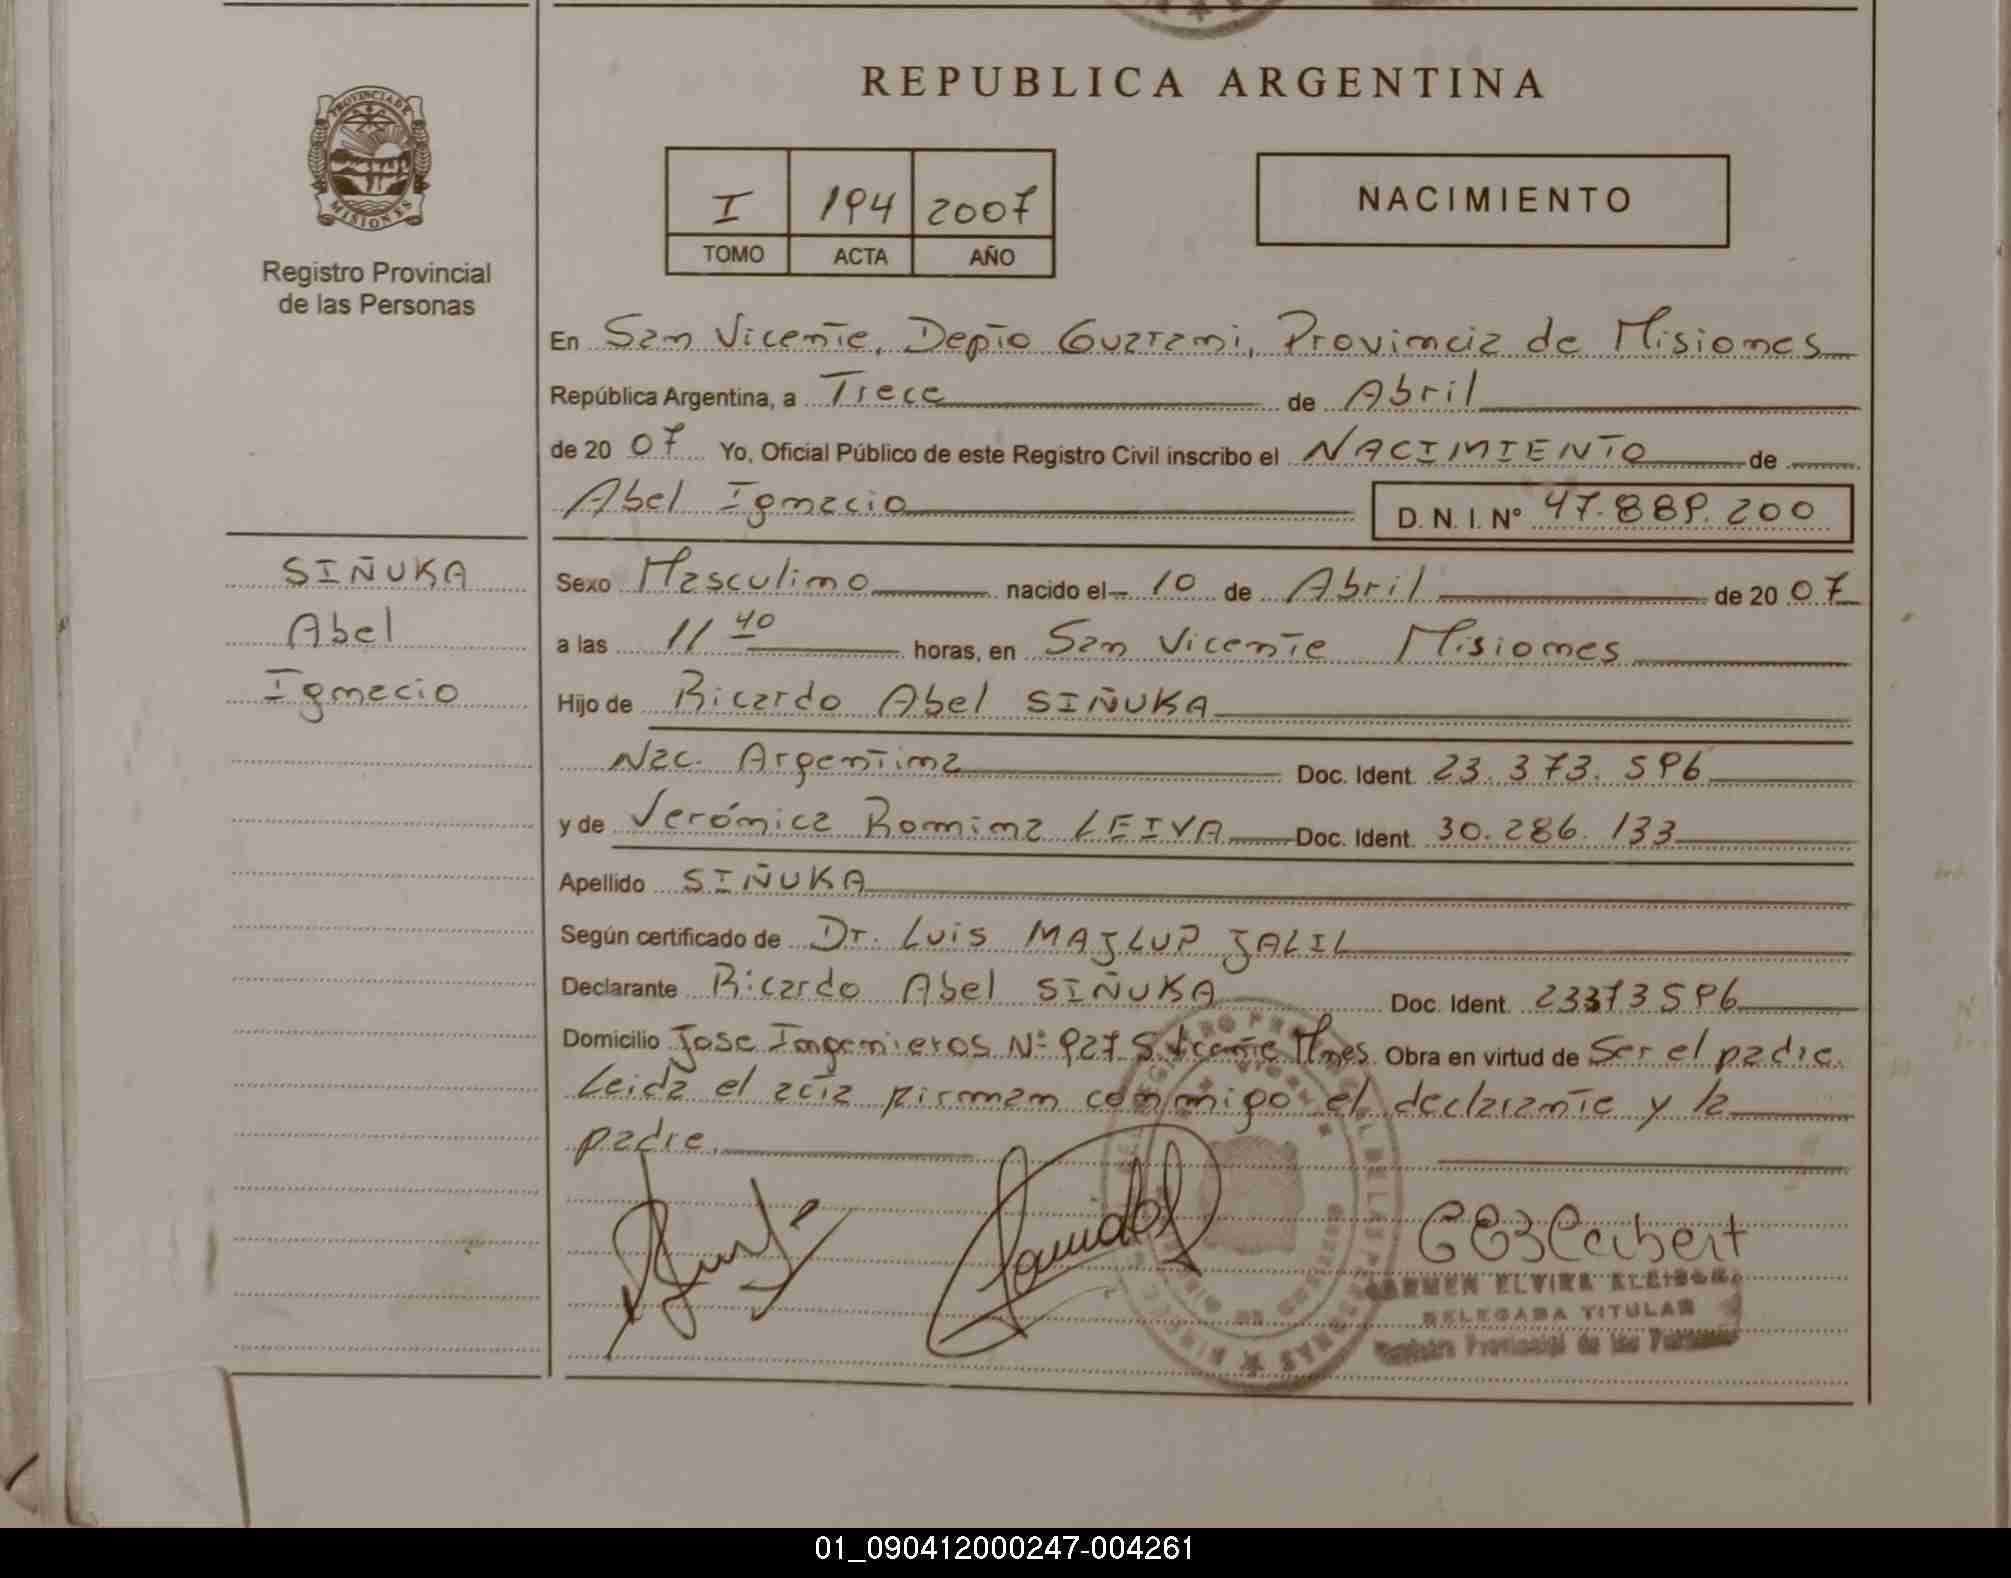 REPUBLICA ARGENTINA
PROVINCIA DE
MISIONES
Registro Provincial
de las Personas
I 194 2007
TOMO ACTA AÑO
NACIMIENTO
En San Vicente, Depto Guarani, Provincia de Misiones
República Argentina, a Trece de Abril
de 2007 Yo, Oficial Público de este Registro Civil inscribo el NACIMIENTO de
Abel Ignacio D. N. I. Nº 47.889.200
SIÑUKA
Abel
Ignacio
Sexo Masculino nacido el 10 de Abril de 2007
a las 11 40 horas, en San Vicente Misiones
Hijo de Ricardo Abel SIÑUKA
Nac. Argentina Doc. Ident. 23.373.596
y de Verónica Romina LEIVA Doc. Ident. 30.286.133
Apellido SIÑUKA
Según certificado de Dr. Luis MAJLUP JALIL
Declarante Ricardo Abel SIÑUKA Doc. Ident. 23373596
Domicilio Jose Ingenieros Nº 927 S. Vicente Mnes. Obra en virtud de Ser el padre.
Leida el acta firman conmigo el declarante y la
padre.
CARMEN ELVIRA
DELEGADA TITULAR
Registro Provincial de las Personas
01_090412000247-004261